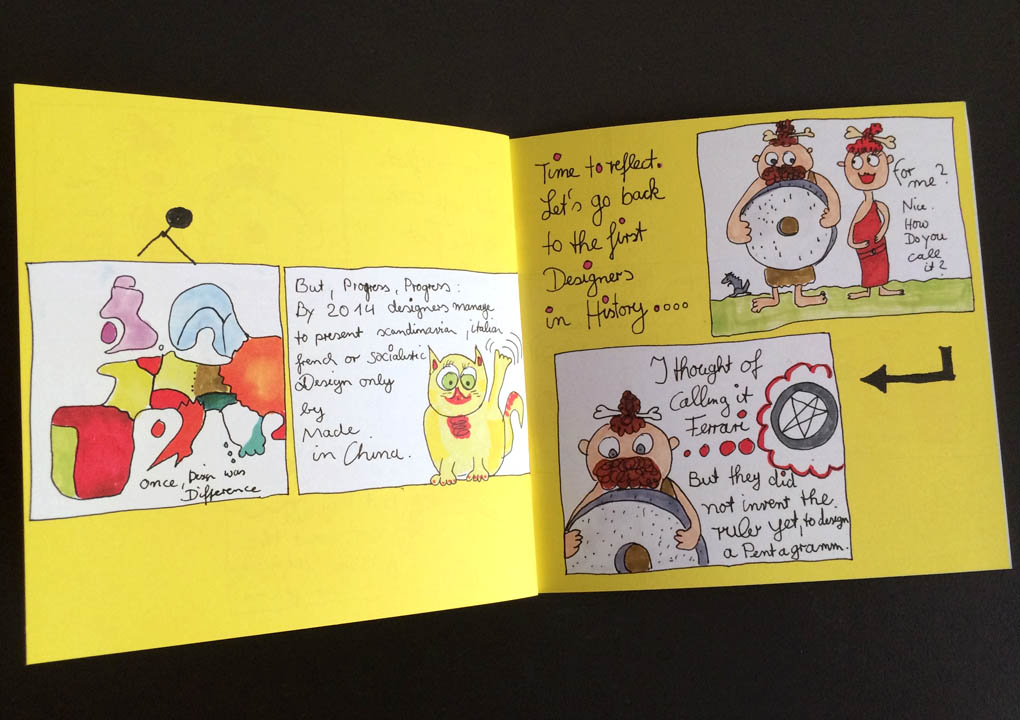 once, Design was
Difference
But, Progress, Progress:
By 2014 designers manage
to present scandinavian, italian
french or socialistic
Design only
by
Made
in China.
Time to reflect.
Let's go back
to the first
Designers
in History....
for
me?
Nice.
How
Do you
call
it?
I thought of
calling it
Ferrari
....
But they did
not invent the
ruler yet, to design
a Pentagramm.